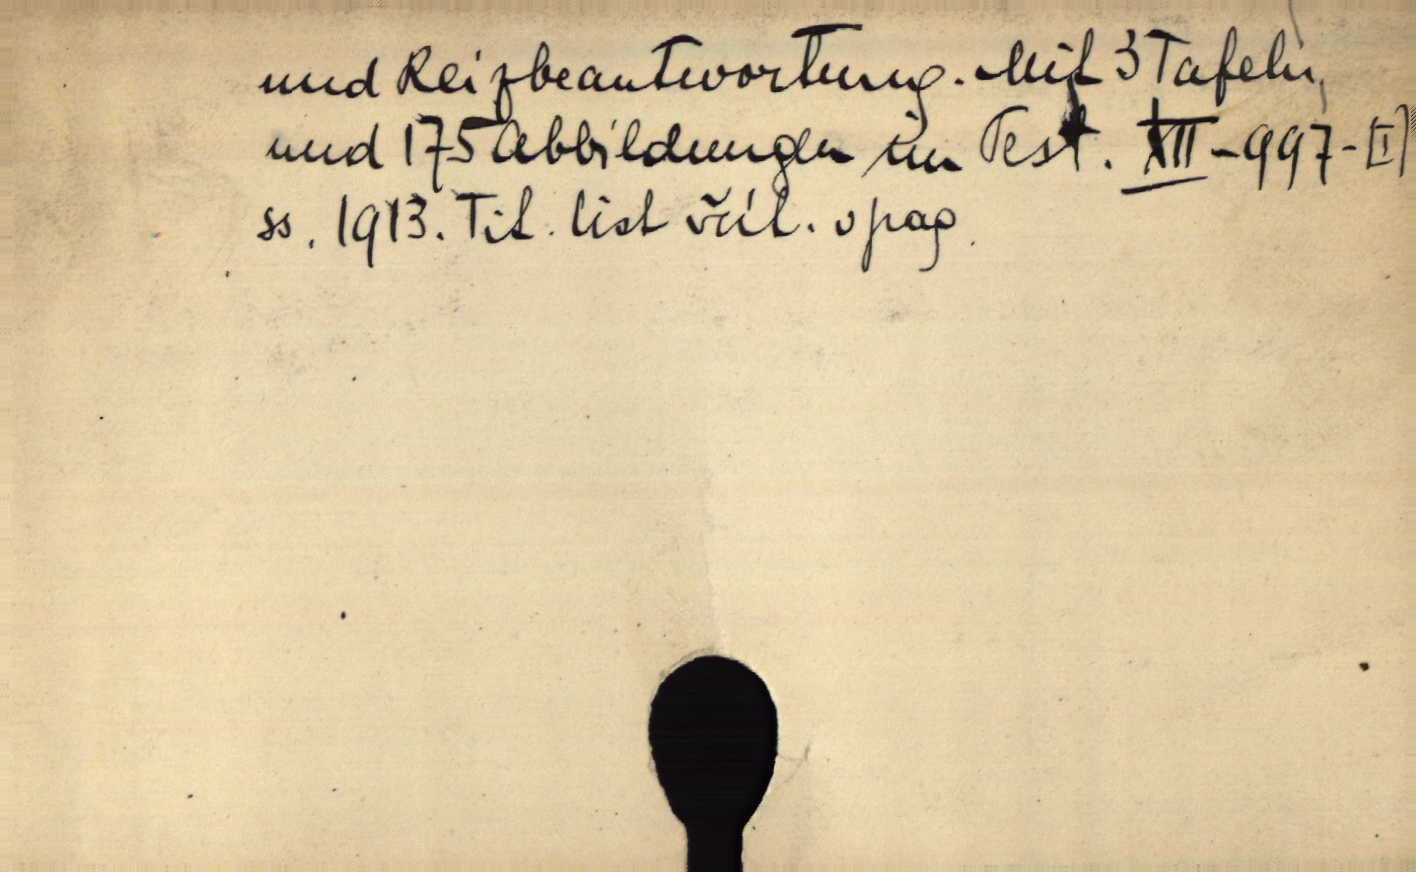 und Reizbeantwortung. Mit 3 Tafeln,
und 175 Abbildungen im Test. XII-997-[I]
ss. 1913. Tit. list včít. v pag.